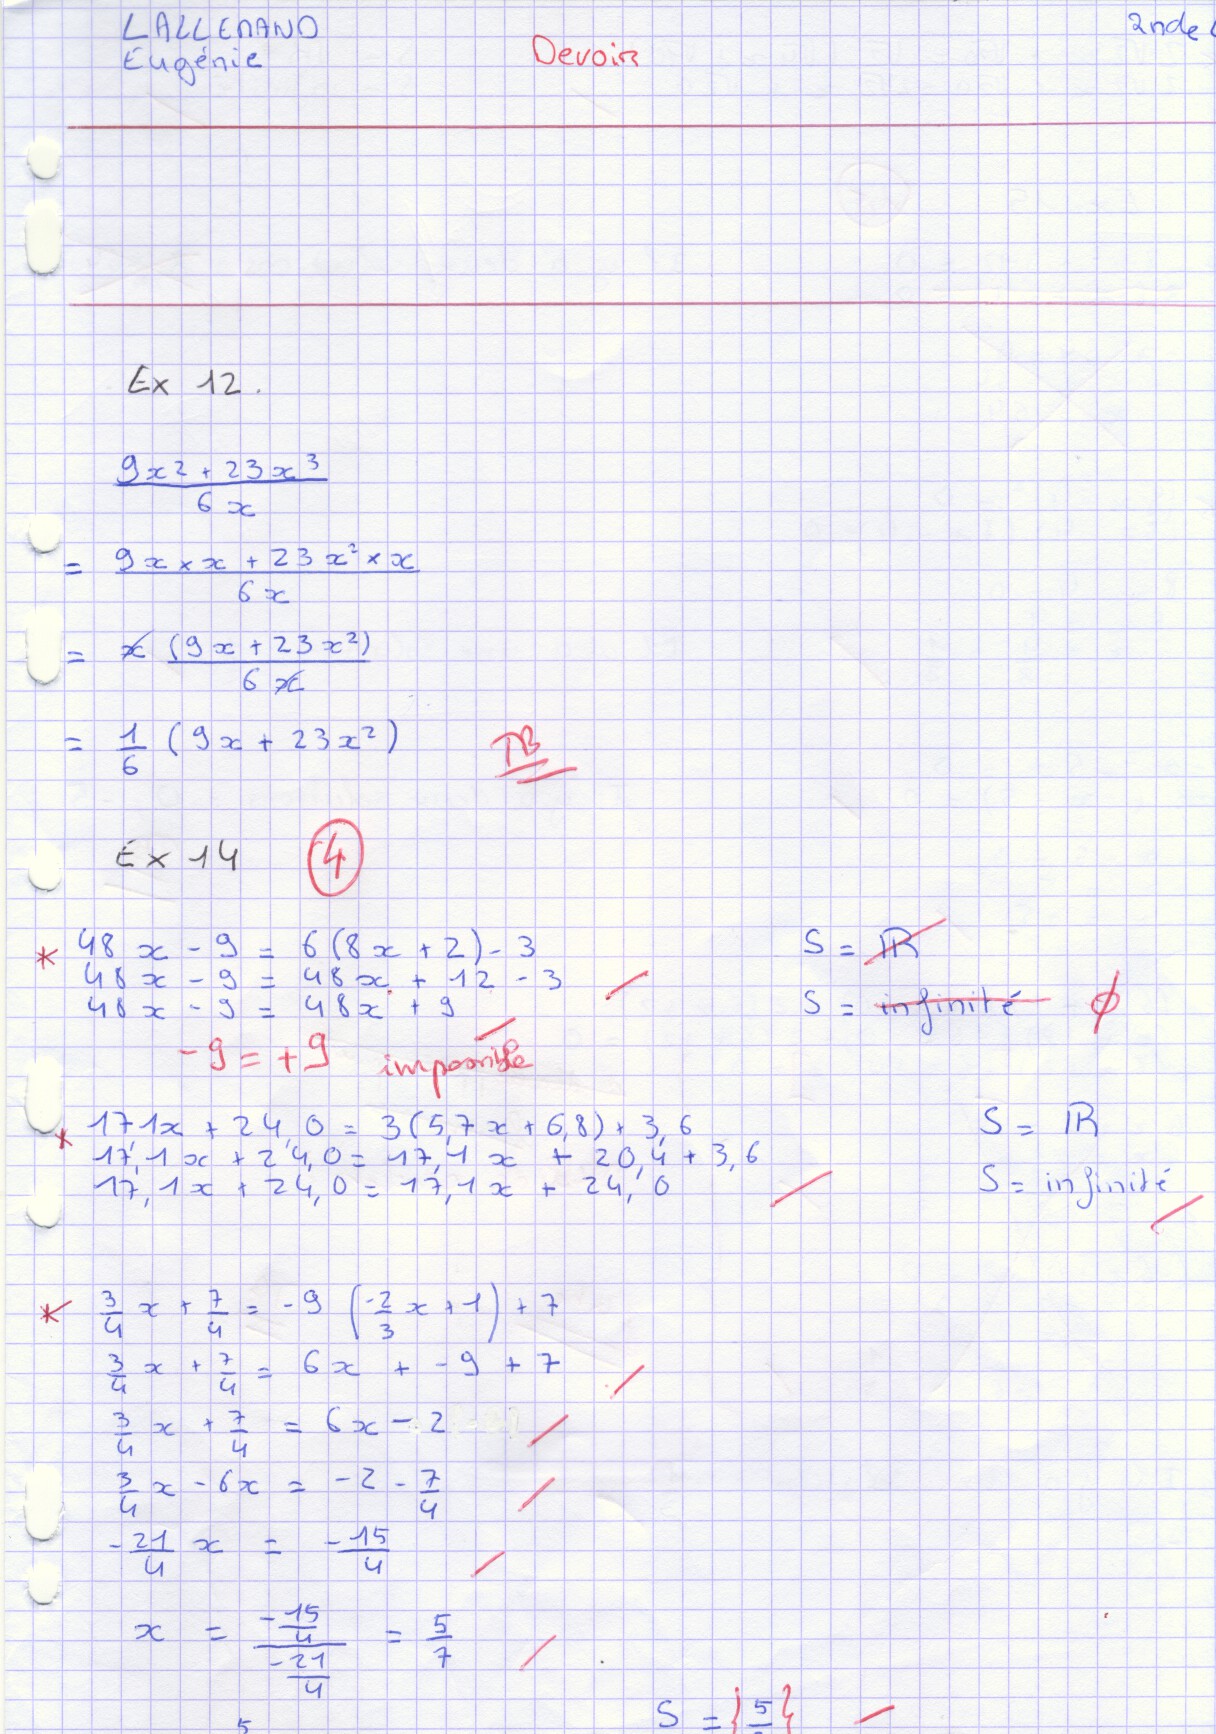 LALLEMAND
Eugénie
Devoir
2nde
Ex 12.
9x² + 23x³
6x
= 9x × x + 23x² × x
6x
= x (9x + 23x²)
6x
= 1/6 (9x + 23x²)
TB
Ex 14
4
* 48x - 9 = 6(8x + 2) - 3
S = ℝ
48x - 9 = 48x + 12 - 3
48x - 9 = 48x + 9
S = infinité ∅
-9 = +9 impossible
* 17,1x + 24,0 = 3(5,7x + 6,8) + 3,6
S = ℝ
17,1x + 24,0 = 17,1x + 20,4 + 3,6
17,1x + 24,0 = 17,1x + 24,0
S = infinité
* 3/4 x + 7/4 = -9 (-2/3 x + 1) + 7
3/4 x + 7/4 = 6x + -9 + 7
3/4 x + 7/4 = 6x - 2
3/4 x - 6x = -2 - 7/4
-21/4 x = -15/4
x = -15/4 / -21/4 = 5/7
S = { 5 }
5